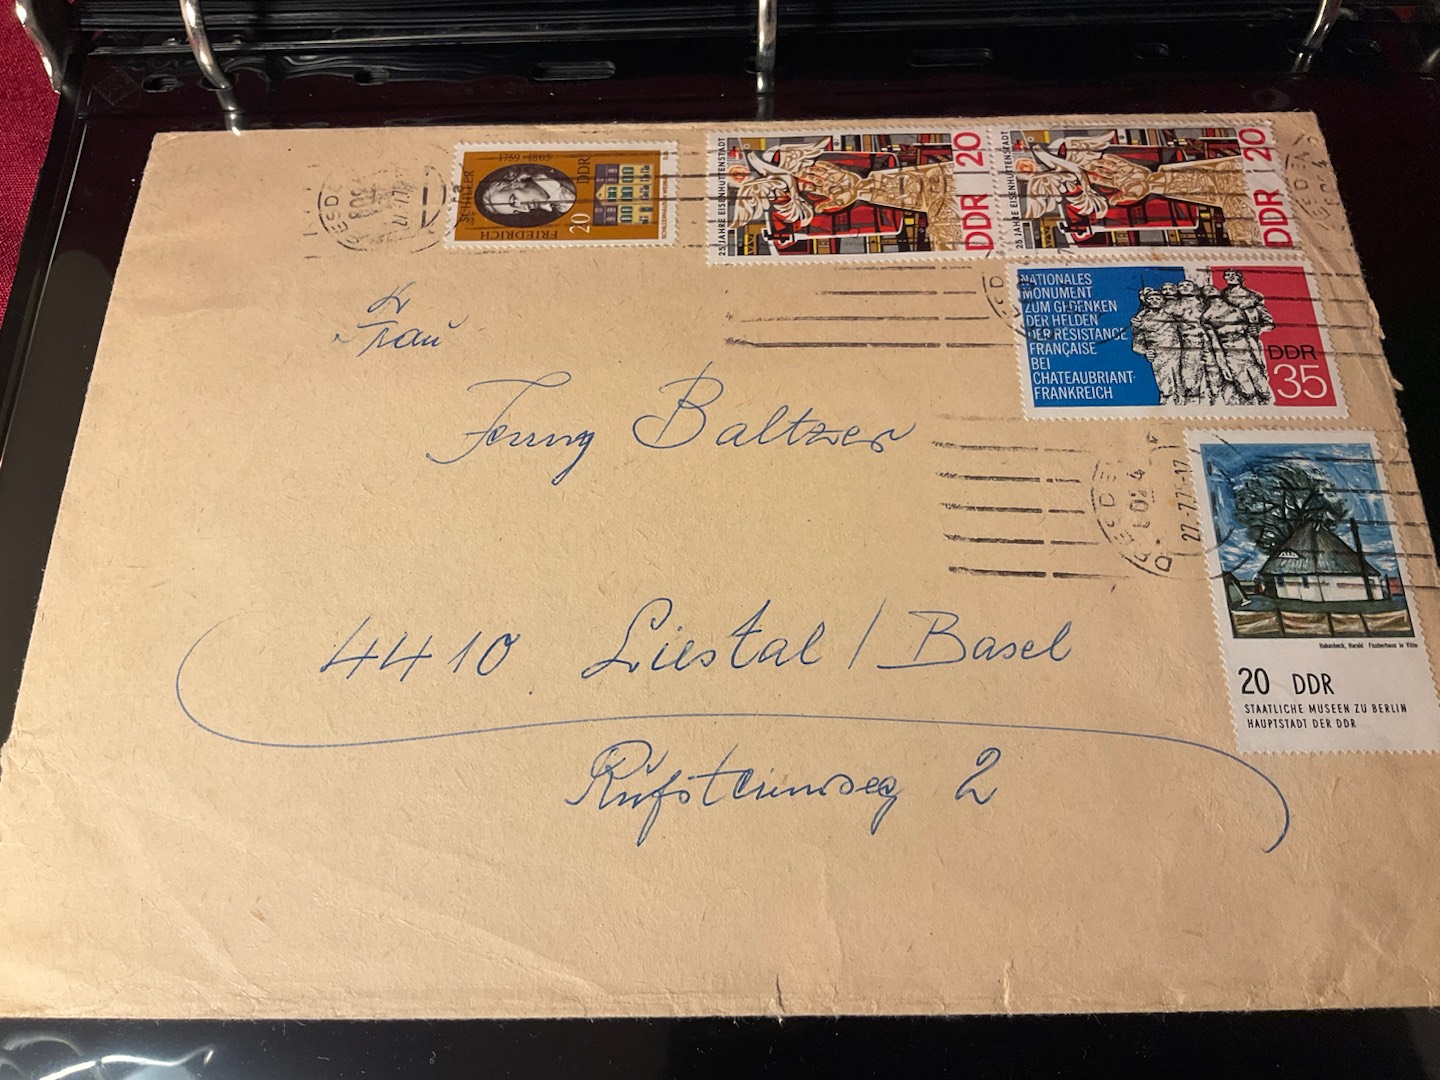 1759-1805
FRIEDRICH SCHILLER
DDR
20
25 JAHRE EISENHÜTTENSTADT
DDR 20
25 JAHRE EISENHÜTTENSTADT
DDR 20
NATIONALES
MONUMENT
ZUM GEDENKEN
DER HELDEN
DER RÉSISTANCE
FRANÇAISE
BEI
CHATEAUBRIANT-
FRANKREICH
DDR
35
27.-7.75-17
Hakenbeck, Harald Fischerhaus in Vitte
20 DDR
STAATLICHE MUSEEN ZU BERLIN
HAUPTSTADT DER DDR
Frau
Jenny Baltzer
4410 Liestal / Basel
2